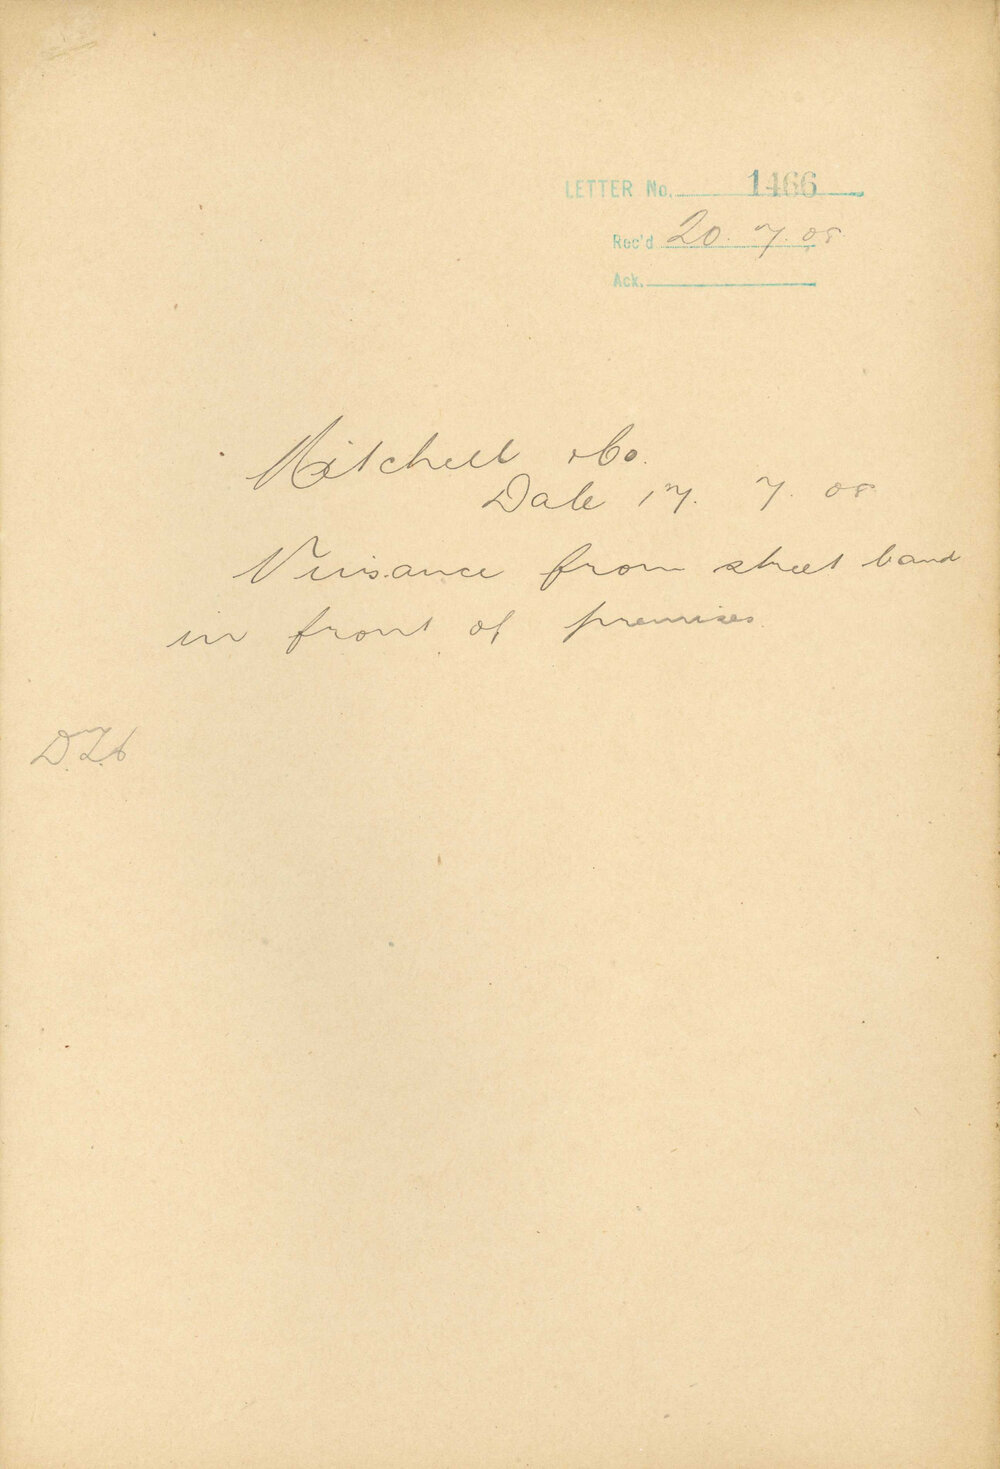 LETTER No. 1466
Rec'd 20. 7. 08
Ack.
Mitchell & Co.
Date 17. 7. 08
Nuisance from street band
in front of premises.